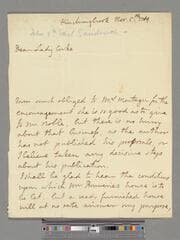 Hinchingbrook Nov. 5th
Dear Lady Corke
I am much obliged to Mrs Montagu for the
encouragement she is so good as to give
to Mr Noble but there is no hurry
about that business as the author
has not published his proposals, or
I believe taken any decisive steps
about his publication.
I shall be glad to hear the conditions
upon which Mr house is to
be let. but a very furnished house
will not no rate answer my purpose,